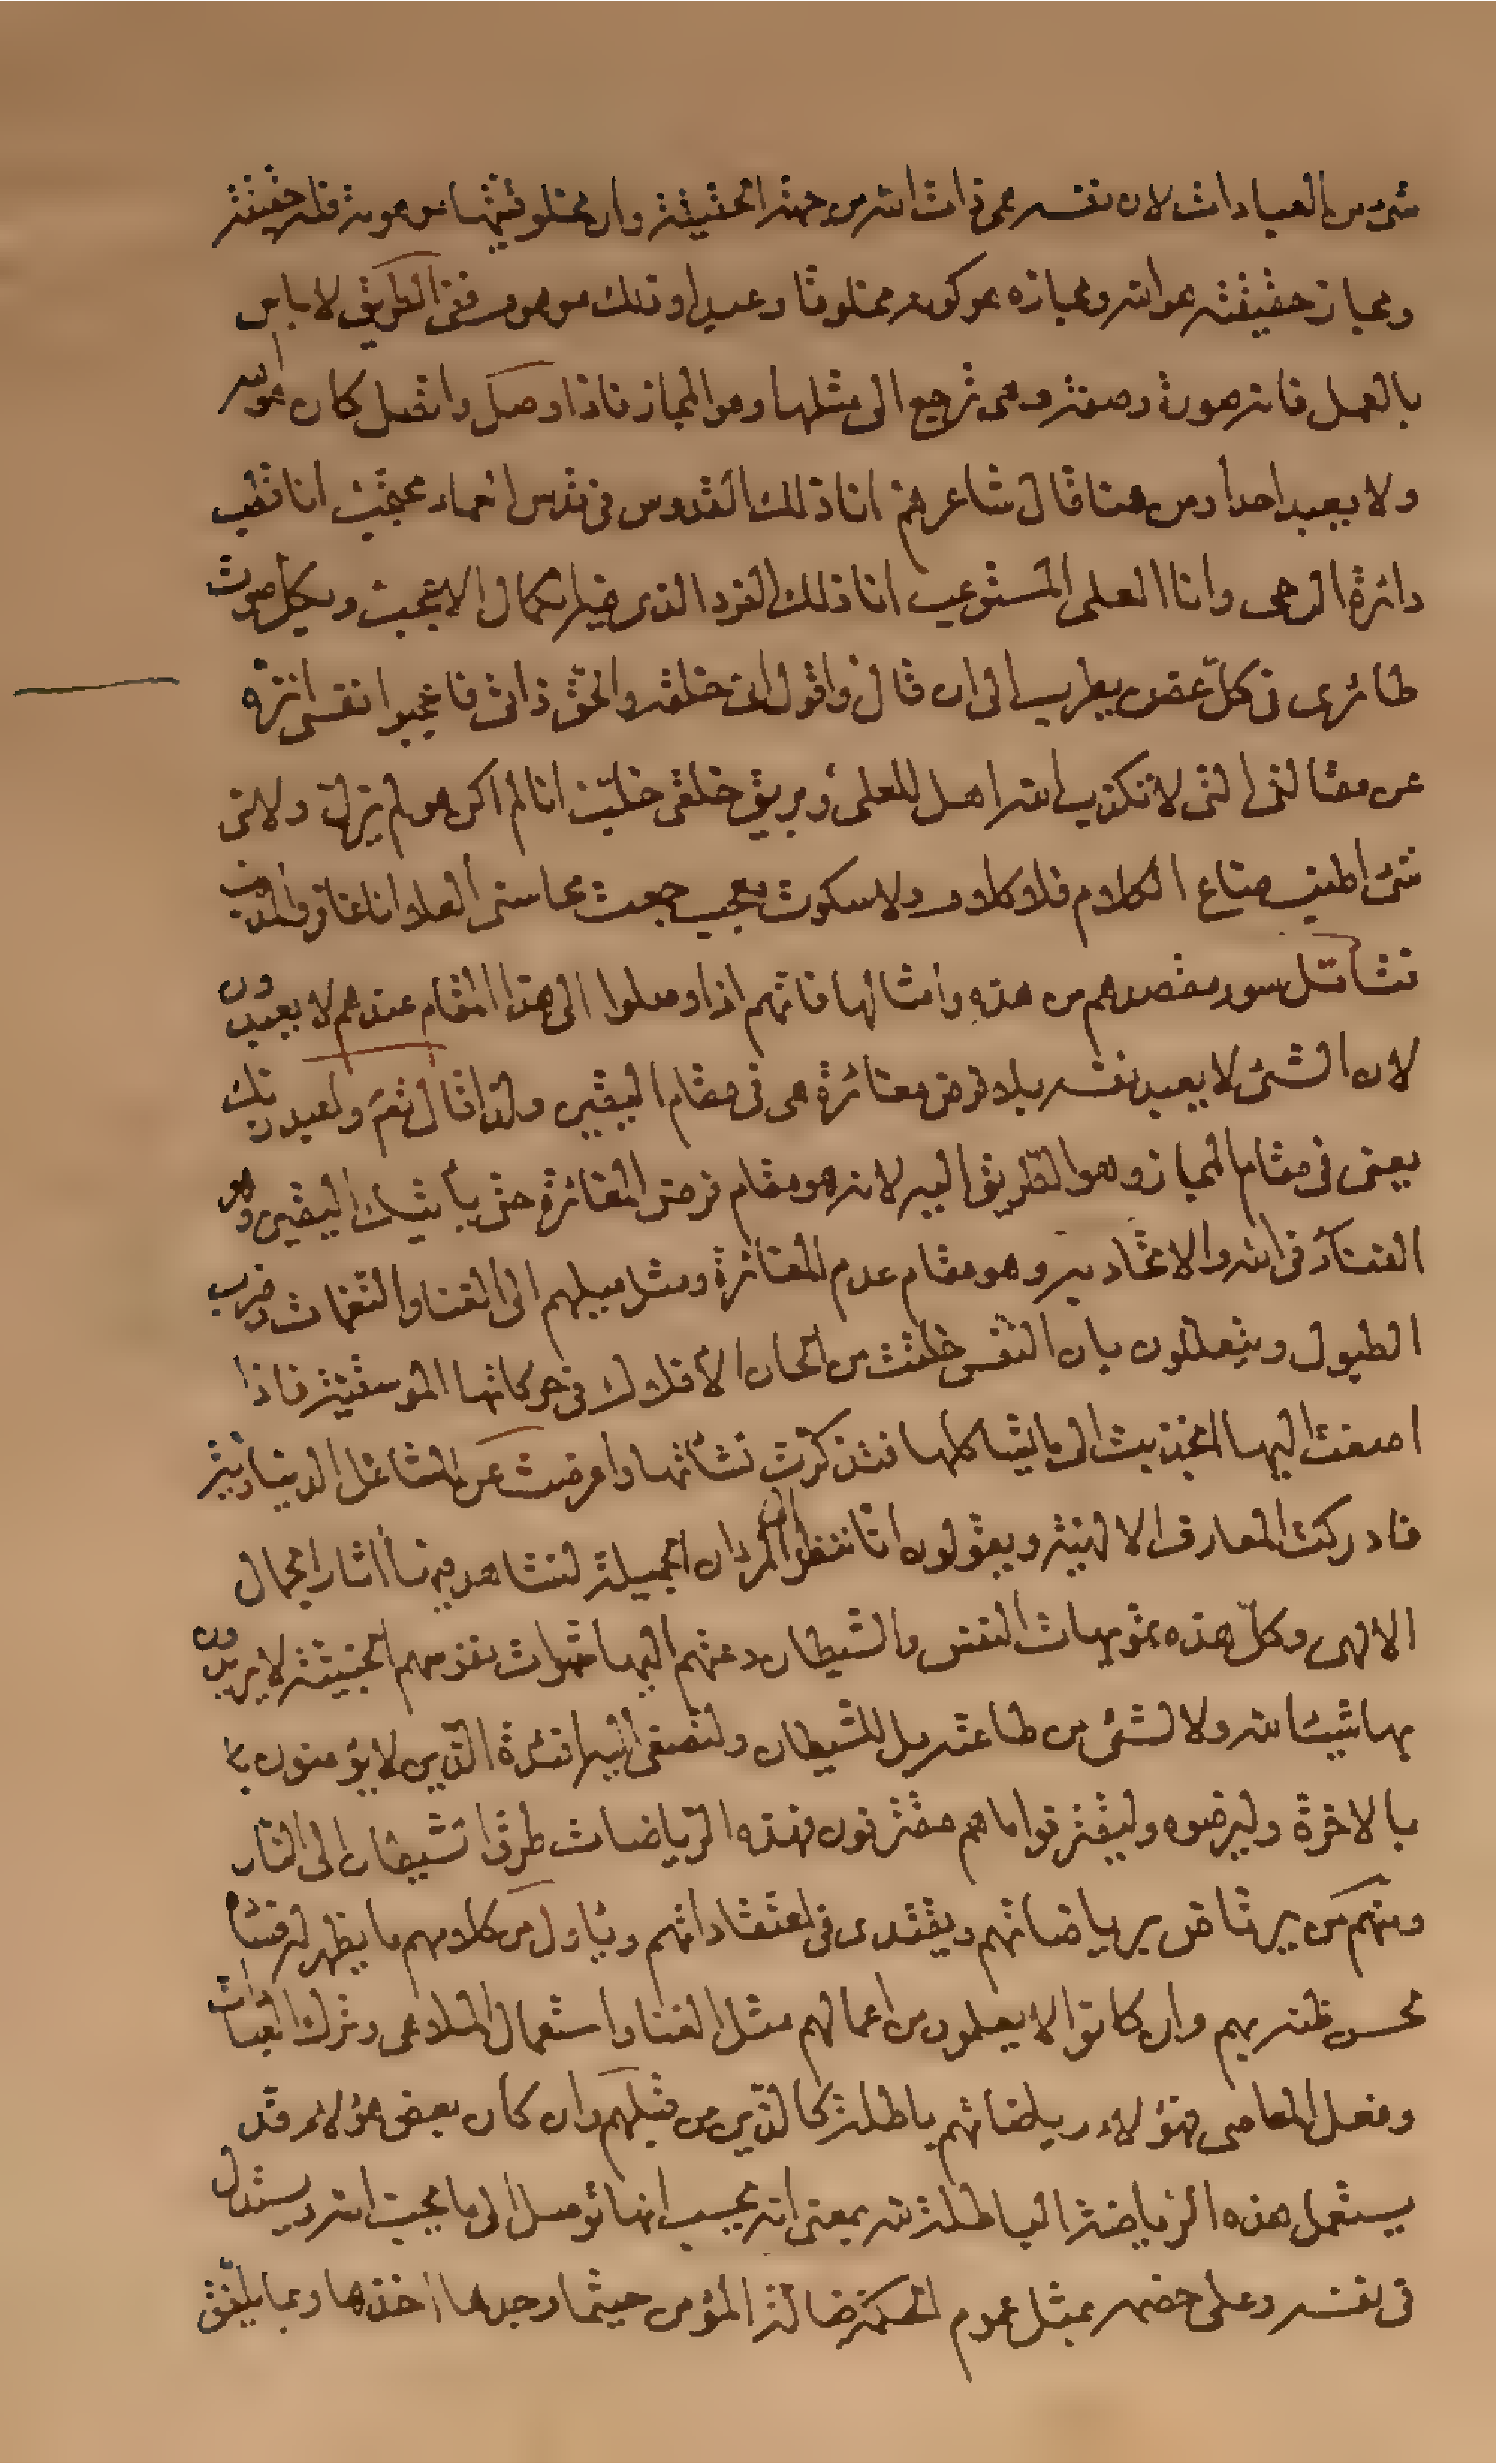 شیء من العبادات لان نفسه هی ذات الله من جهة الحقیقة وان مخلوقیتها من هویة فله حقیقة
ومجاز حقیقته هو الله ومجازه هو کونه مخلوقا وعبدا وذلک من هو فی الطریق لا باس
بالعمل فانه صورة وصفة وهی ترجع الی مثلها وهو المجاز فاذا وصل واتصل کان هو الله
ولا یعبد احدا ومن هنا قال شاعرهم انا ذلک القدوس فی قدس العماء محجّب انا قطب
دائرة الرحی وانا العلی المستوعب انا ذلک الفرد الذی فیه الکمال الاعجب وبکل صوت
طائری فی کلّ غصن یطرب الی ان قال واقول انی خلقه والحق ذاتی فاعجبوا نفسی انزّه
عن مقالتی التی لا تکذب الله اهل للعلی وبریق خلقی خلّب انا لم اکن هو لم یزل ولای
شیء اطنب ضاع الکلام فلا کلام ولا سکوت معجب جمعت محاسنی العلا انا غافر والمذنب
فتأمّل سوء مقصدهم من هذه وامثالها فانهم اذا وصلوا الی هذا المقام عندهم لا یعبدون
لان الشیء لا یعبد نفسه بلا فرض مغائرة هی فی مقام الیقین ولذا قال تعم واعبد ربک
یعنی فی مقام المجاز وهو الطریق الیه لانه هو مقام فرض المغائرة حتی یأتیک الیقین وهو
الفناء فی الله والاتحاد به وهو مقام عدم المغائرة ومثل میلهم الی الغناء والنغمات وضرب
الطبول ویتعللون بان النفس خلقت من الحان الأفلاک فی حرکاتها الموسقیة فاذا
اصغت الیها انجذبت الی ما یشاکلها فتذکرت نشأتها واعرضت عن المشاغل الدنیاویّة
فادرکت المعارف الالهیّة ویقولون انّا ننظر الی المردان الجمیلة لنشاهد فیها آثار الجمال
الالهی وکلّ هذه تمویهات النفس والشیطان دعتهم الیها شهوات نفوسهم الخبیثة لا یریدون
بها شیئا لله ولا لشیء من طاعته بل للشیطان ولتصغی الیه افئدة الذین لا یؤمنون با
بالاخرة ولیرضوه ولیقترفوا ما هم مقترفون فهذه الریاضات طرق الشیطان الی النار
ومنهم من یرتاض بریاضاتهم ویقتدی فی اعتقاداتهم ویأول من کلامهم ما یظهر له فساده
لحسن ظنه بهم وان کانوا لا یعلمون من اعمالهم مثل الغناء واستعمال الملاهی وترک العبادات
وفعل المعاصی فهؤلاء ریاضاتهم باطلة کالذین من قبلهم وان کان بعض هؤلاء قد
یستعمل هذه الریاضة الباطلة لله بمعنی انه یحسب انها توصل الی ما یحب الله ویستدل
فی نفسه وعلی خصمه بمثل عموم الحکمة ضالة المؤمن حیثما وجدها اخذها وبما یلفّق